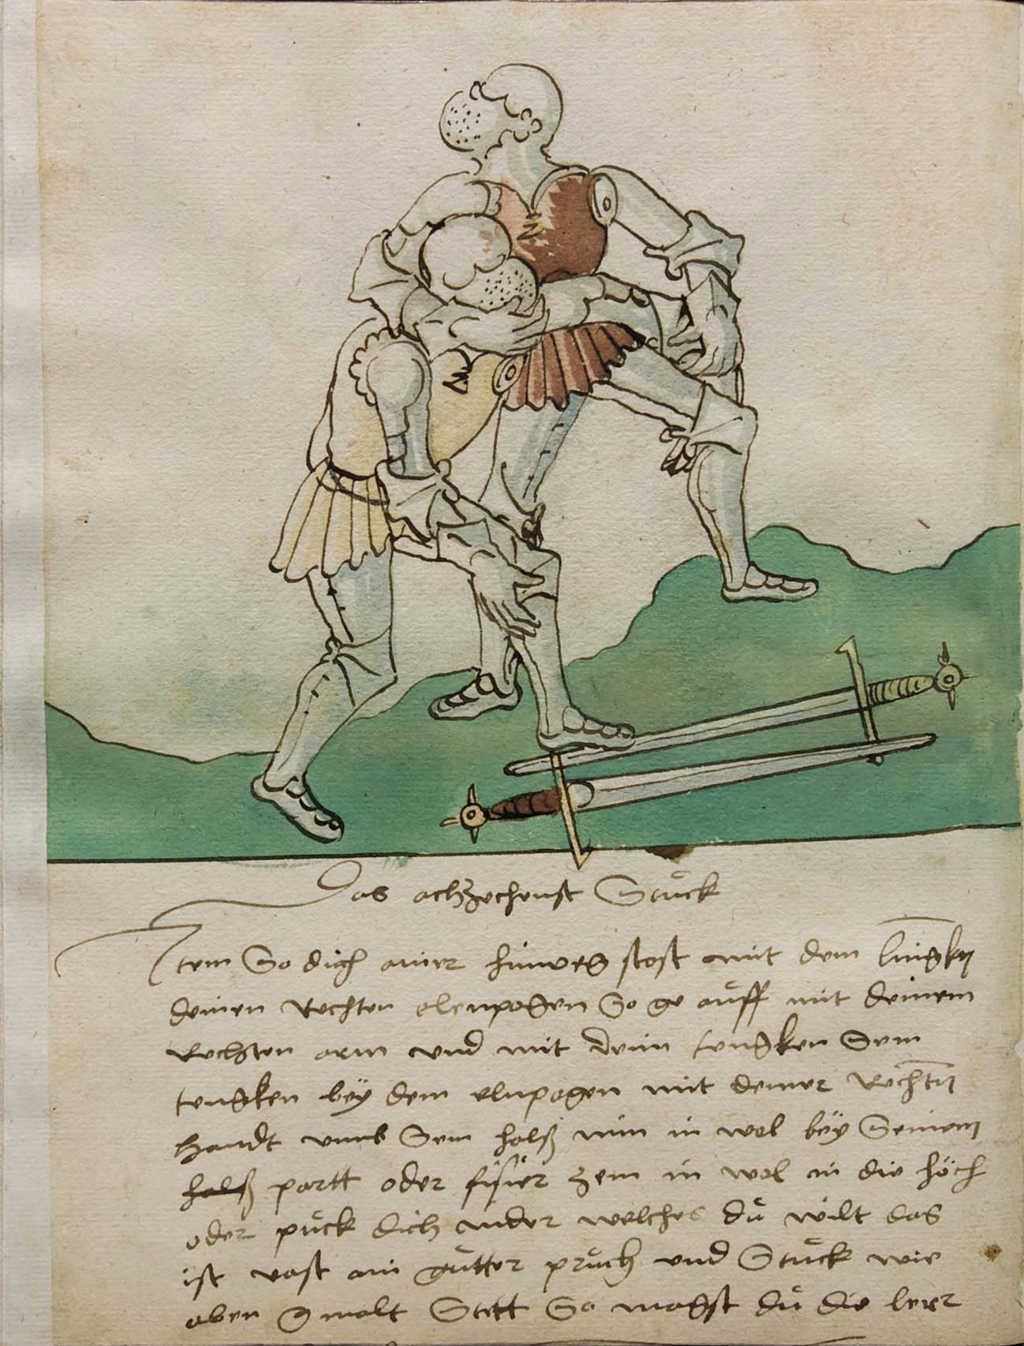 Das achzechenst Stuck
Item So dich ainer hinweg stost mit dem lingkn
deinen Rechten elenpogen So ge auff mit deinem
Rechten arm und mit deim lengken Sein
lengken bey dem elnpogen mit deiner Rechtn
Handt umb Sein halß nim in wol bey Seinem
halß partt oder fisier zem in wol in die höch
oder puck dich nider welches du wilt das
ist vast ain gutter pruch und Stuck wie
oben gmalt Stett So magst du die lerr